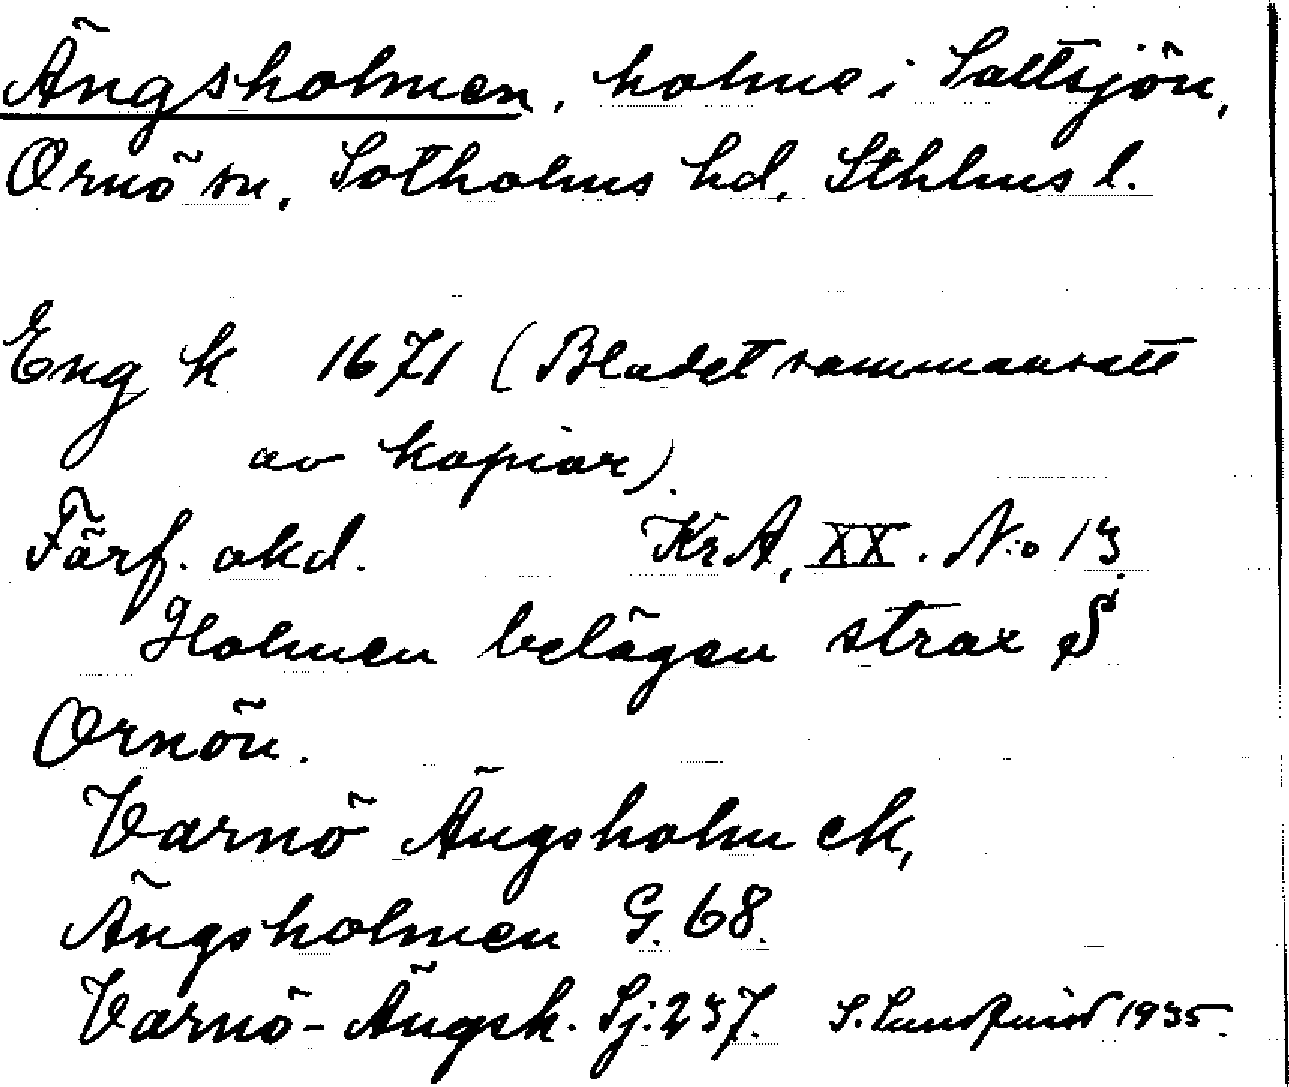 Ängsholmen, holme i Saltsjön,
Ornö sn, Sotholms hd, Sthlms l.
Eng k 1671 (Bladet sammansatt
av kopior).
Förf. okd. KrA, XX. N:o 13.
Holmen belägen strax S
Ornön.
Varnö Ängsholm ek,
Ängsholmen G. 68.
Varnö-Ängsh. Sj: 237. S. Lundquist 1935.